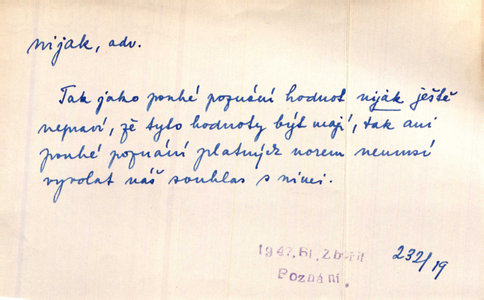 nijak, adv.
Tak jako pouhé poznání hodnot niják ještě
nepraví, že tyto hodnoty být mají, tak ani
pouhé poznání platných norem neumsí
vyvolat náš souhlas s nimi.
1947, Bl. Zbořil
Poznání.
232/19